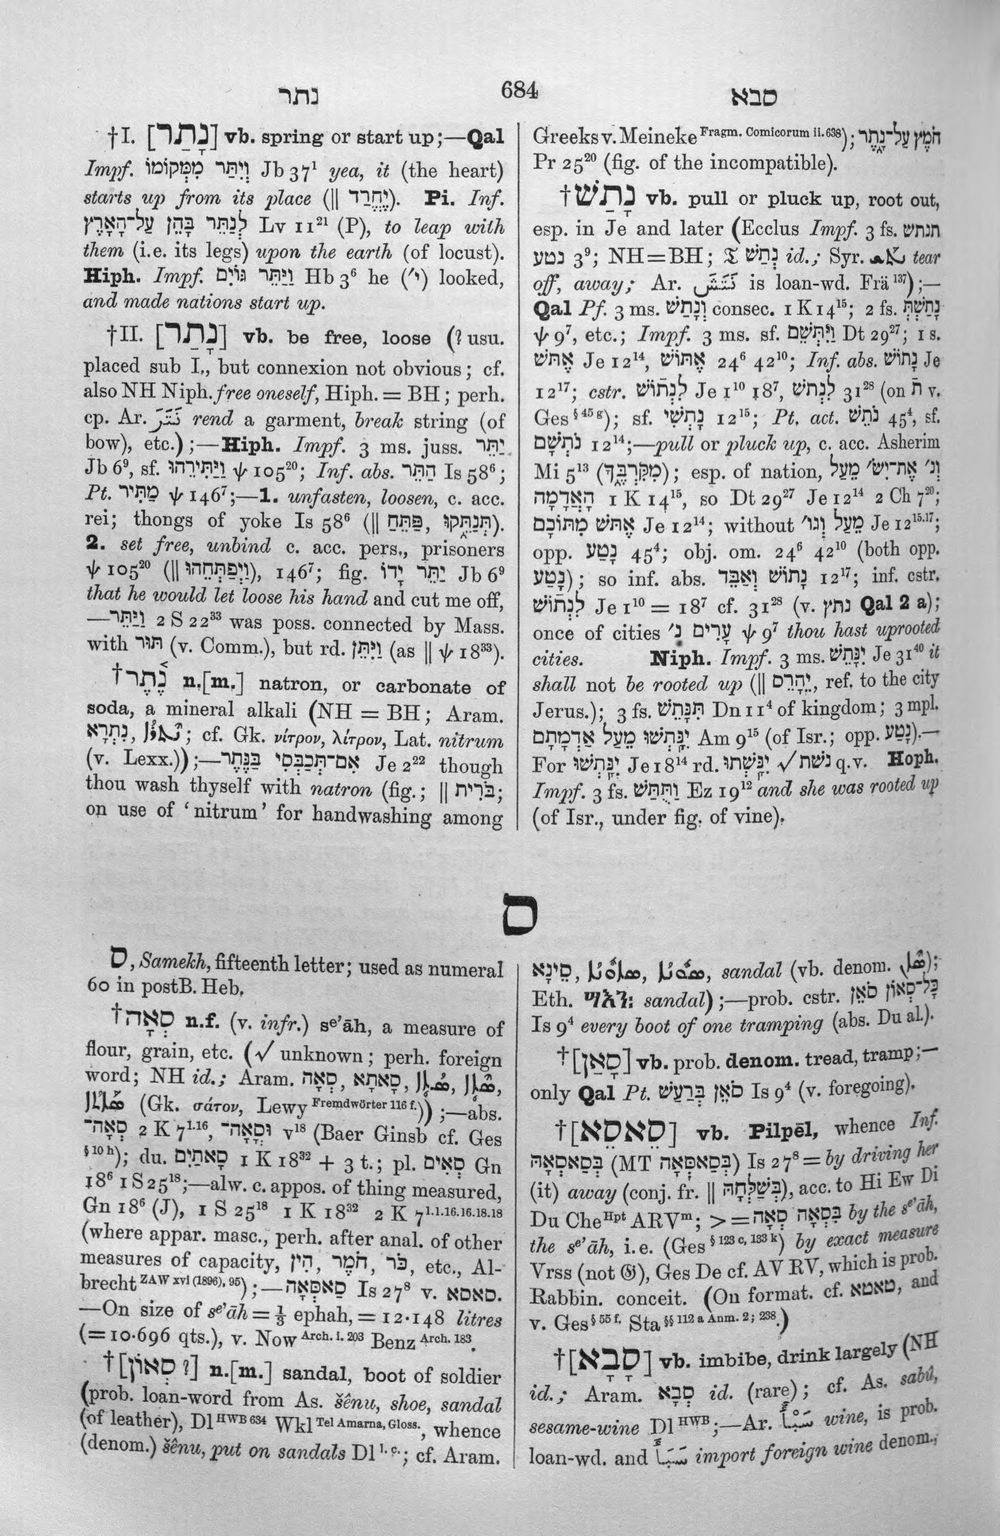 נתר
684
סבא
†I. [נָתַר] vb. spring or start up;—Qal
Impf. וְיִתַּר מִמְּקוֹמוֹ Jb 37¹ yea, it (the heart)
starts up from its place (|| יֶחֱרַד). Pi. Inf.
לְנַתֵּר בָּהֵן עַל־הָאָרֶץ Lv 11²¹ (P), to leap with
them (i.e. its legs) upon the earth (of locust).
Hiph. Impf. וַיַּתֵּר גּוֹיִם Hb 3⁶ he (י׳) looked,
and made nations start up.
†II. [נָתַר] vb. be free, loose (? usu.
placed sub I., but connexion not obvious; cf.
also NH Niph. free oneself, Hiph. = BH; perh.
cp. Ar. نَتَرَ rend a garment, break string (of
bow), etc.);—Hiph. Impf. 3 ms. juss. יַתֵּר
Jb 6⁹, sf. וַיַּתִּירֵהוּ ψ 105²⁰; Inf. abs. הַתֵּר Is 58⁶;
Pt. מַתִּיר ψ 146⁷;—1. unfasten, loosen, c. acc.
rei; thongs of yoke Is 58⁶ (|| פַּתֵּחַ, תְּנַתֵּקוּ).
2. set free, unbind c. acc. pers., prisoners
ψ 105²⁰ (|| וַיְפַתְּחֵהוּ), 146⁷; fig. יַתֵּר יָדוֹ Jb 6⁹
that he would let loose his hand and cut me off,
—וַיַּתֵּר 2 S 22³³ was poss. connected by Mass.
with תּוּר (v. Comm.), but rd. וַיִּתֵּן (as || ψ 18³³).
†נֶ֫תֶר n.[m.] natron, or carbonate of
soda, a mineral alkali (NH = BH; Aram.
נִתְרָא, ; cf. Gk. νίτρον, λίτρον, Lat. nitrum
(v. Lexx.));—אִם־תְּכַבְּסִי בַּנֶּתֶר Je 2²² though
thou wash thyself with natron (fig.; || בֹּרִית;
on use of ‘nitrum’ for handwashing among
Greeks v. Meineke Fragm. Comicorum ii. 638); חֹמֶץ עַל־נָ֑תֶר
Pr 25²⁰ (fig. of the incompatible).
†נָתַשׁ vb. pull or pluck up, root out,
esp. in Je and later (Ecclus Impf. 3 fs. תנתש
נטע 3⁹; NH=BH; 𝔗 נְתַשׁ id.; Syr. tear
off, away; Ar. نَتَشَ is loan-wd. Frä 137);—
Qal Pf. 3 ms. וְנָתַשׁ consec. 1 K 14¹⁵; 2 fs. נָתַשְׁתָּ
ψ 9⁷, etc.; Impf. 3 ms. sf. וַיִּתְּשֵׁם Dt 29²⁷; 1 s.
אֶתֹּשׁ Je 12¹⁴, אֶתּוֹשׁ 24⁶ 42¹⁰; Inf. abs. נָתוֹשׁ Je
12¹⁷; cstr. לִנְתוֹשׁ Je 1¹⁰ 18⁷, לִנְתוֹשׁ 31²⁸ (on ת v.
Ges § 45 g); sf. נָתְשִׁי 12¹⁵; Pt. act. נֹתֵשׁ 45⁴, sf.
נֹתְשָׁם 12¹⁴;—pull or pluck up, c. acc. Asherim
Mi 5¹³ (מִקִּרְבֶּךָ); esp. of nation, וְנ׳ אֶת־יִשׂ׳ מֵעַל
הָאֲדָמָה 1 K 14¹⁵, so Dt 29²⁷ Je 12¹⁴ 2 Ch 7²⁰;
אֶתֹּשׁ מִתּוֹכָם Je 12¹⁴; without מֵעַל וגו׳ Je 12¹⁵·¹⁷;
opp. נָטַע 45⁴; obj. om. 24⁶ 42¹⁰ (both opp.
נָטַע); so inf. abs. נָתוֹשׁ וְאַבֵּד 12¹⁷; inf. cstr.
לִנְתוֹשׁ Je 1¹⁰ = 18⁷ cf. 31²⁸ (v. נתץ Qal 2 a);
once of cities עָרִים נ׳ ψ 9⁷ thou hast uprooted
cities. Niph. Impf. 3 ms. יִנָּתֵשׁ Je 31⁴⁰ it
shall not be rooted up (|| יֵהָרֵס, ref. to the city
Jerus.); 3 fs. תִּנָּתֵשׁ Dn 11⁴ of kingdom; 3 mpl.
יִנָּתְשׁוּ מֵעַל אַדְמָתָם Am 9¹⁵ (of Isr.; opp. נָטַע).—
For יִנָּתְשׁוּ Je 18¹⁴ rd. יִנָּשְׁתוּ √ נשׁת q.v. Hoph.
Impf. 3 fs. וַתֻּתַּשׁ Ez 19¹² and she was rooted up
(of Isr., under fig. of vine).
ס
ס, Samekh, fifteenth letter; used as numeral
60 in postB. Heb.
†סְאָה n.f. (v. infr.) sᵉʾāh, a measure of
flour, grain, etc. (√ unknown; perh. foreign
word; NH id.; Aram. סָאָה, סָאתָא,
(Gk. σάτον, Lewy Fremdwörter 116 f.));—abs.
סְאָה־ 2 K 7¹·¹⁶, וּסְאָה־ v¹⁸ (Baer Ginsb cf. Ges
§ 10 h); du. סָאתַיִם 1 K 18³² + 3 t.; pl. סְאִים Gn
18⁶ 1 S 25¹⁸;—alw. c. appos. of thing measured,
Gn 18⁶ (J), 1 S 25¹⁸ 1 K 18³² 2 K 7¹·¹·¹⁶·¹⁶·¹⁸·¹⁸
(where appar. masc., perh. after anal. of other
measures of capacity, כֹּר, חֹמֶר, הִין, etc., Al-
brecht ZAW xvi (1896), 95);—סַאסְּאָה Is 27⁸ v. סאסא.
—On size of sᵉʾāh = ⅓ ephah, = 12·148 litres
(= 10·696 qts.), v. Now Arch. i. 203 Benz Arch. 183.
†[סְאוֹן ?] n.[m.] sandal, boot of soldier
(prob. loan-word from As. šênu, shoe, sandal
(of leather), Dl HWB 634 Wkl Tel Amarna, Gloss., whence
(denom.) šênu, put on sandals Dl l. c.; cf. Aram.
סֵינָא, sandal (vb. denom. );
Eth. ሣእን: sandal);—prob. cstr. כָּל־סְאוֹן סֹאֵן
Is 9⁴ every boot of one tramping (abs. Du al.).
†[סָאַן] vb. prob. denom. tread, tramp;—
only Qal Pt. סֹאֵן בְּרַעַשׁ Is 9⁴ (v. foregoing).
†[סֵאסֵא] vb. Pilpēl, whence Inf.
בְּסַאסְאָהּ (MT בְּסַאסְּאָה) Is 27⁸ = by driving her
(it) away (conj. fr. || בְּשַׁלְחָהּ), acc. to Hi Ew Di
Du Che Hpt ARVᵐ; > = בִּסְאָה סְאָה by the sᵉʾāh,
the sᵉʾāh, i.e. (Ges § 123 c, 133 k) by exact measure
Vrss (not 𝔊), Ges De cf. AV RV, which is prob.
Rabbin. conceit. (On format. cf. טאטא, and
v. Ges § 55 f. Sta §§ 112 a Anm. 2; 238.)
†[סָבָא] vb. imbibe, drink largely (NH
id.; Aram. סְבָא id. (rare); cf. As. sabû,
sesame-wine Dl HWB;—Ar. wine, is prob.
loan-wd. and import foreign wine denom.,